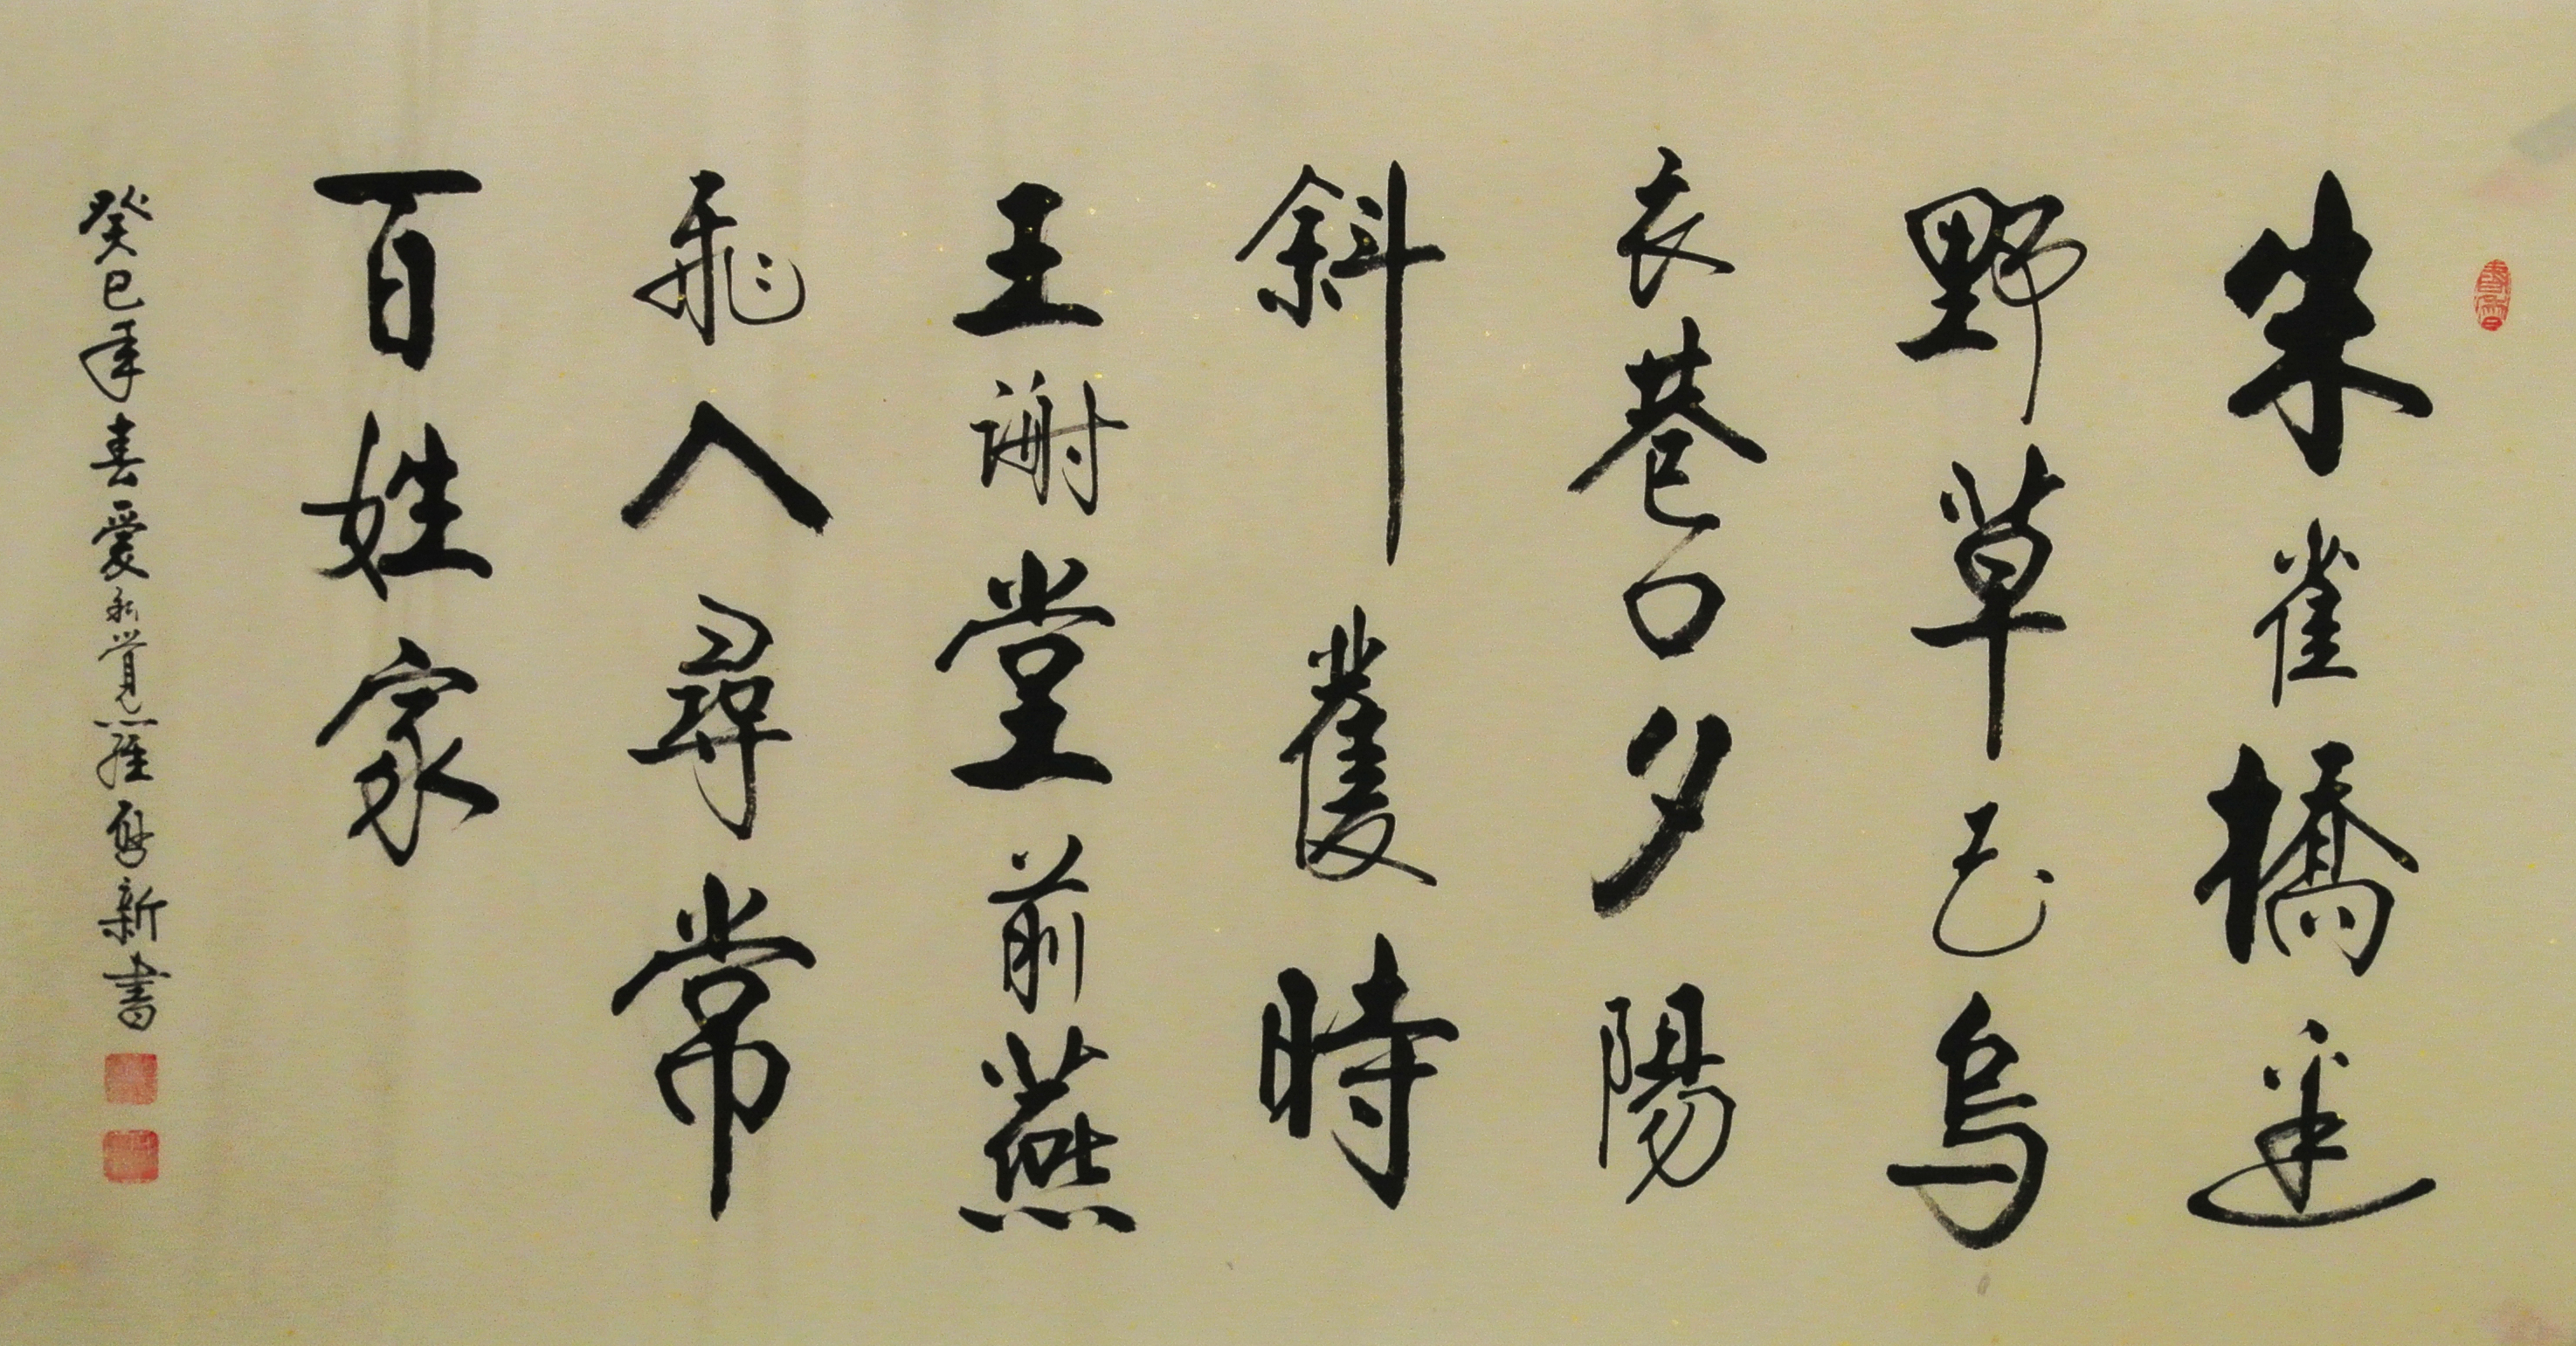 朱雀橋邊
野草花烏
衣巷口夕陽
斜舊時
王謝堂前燕
飛入尋常
百姓家
癸巳年春愛新覺羅新書